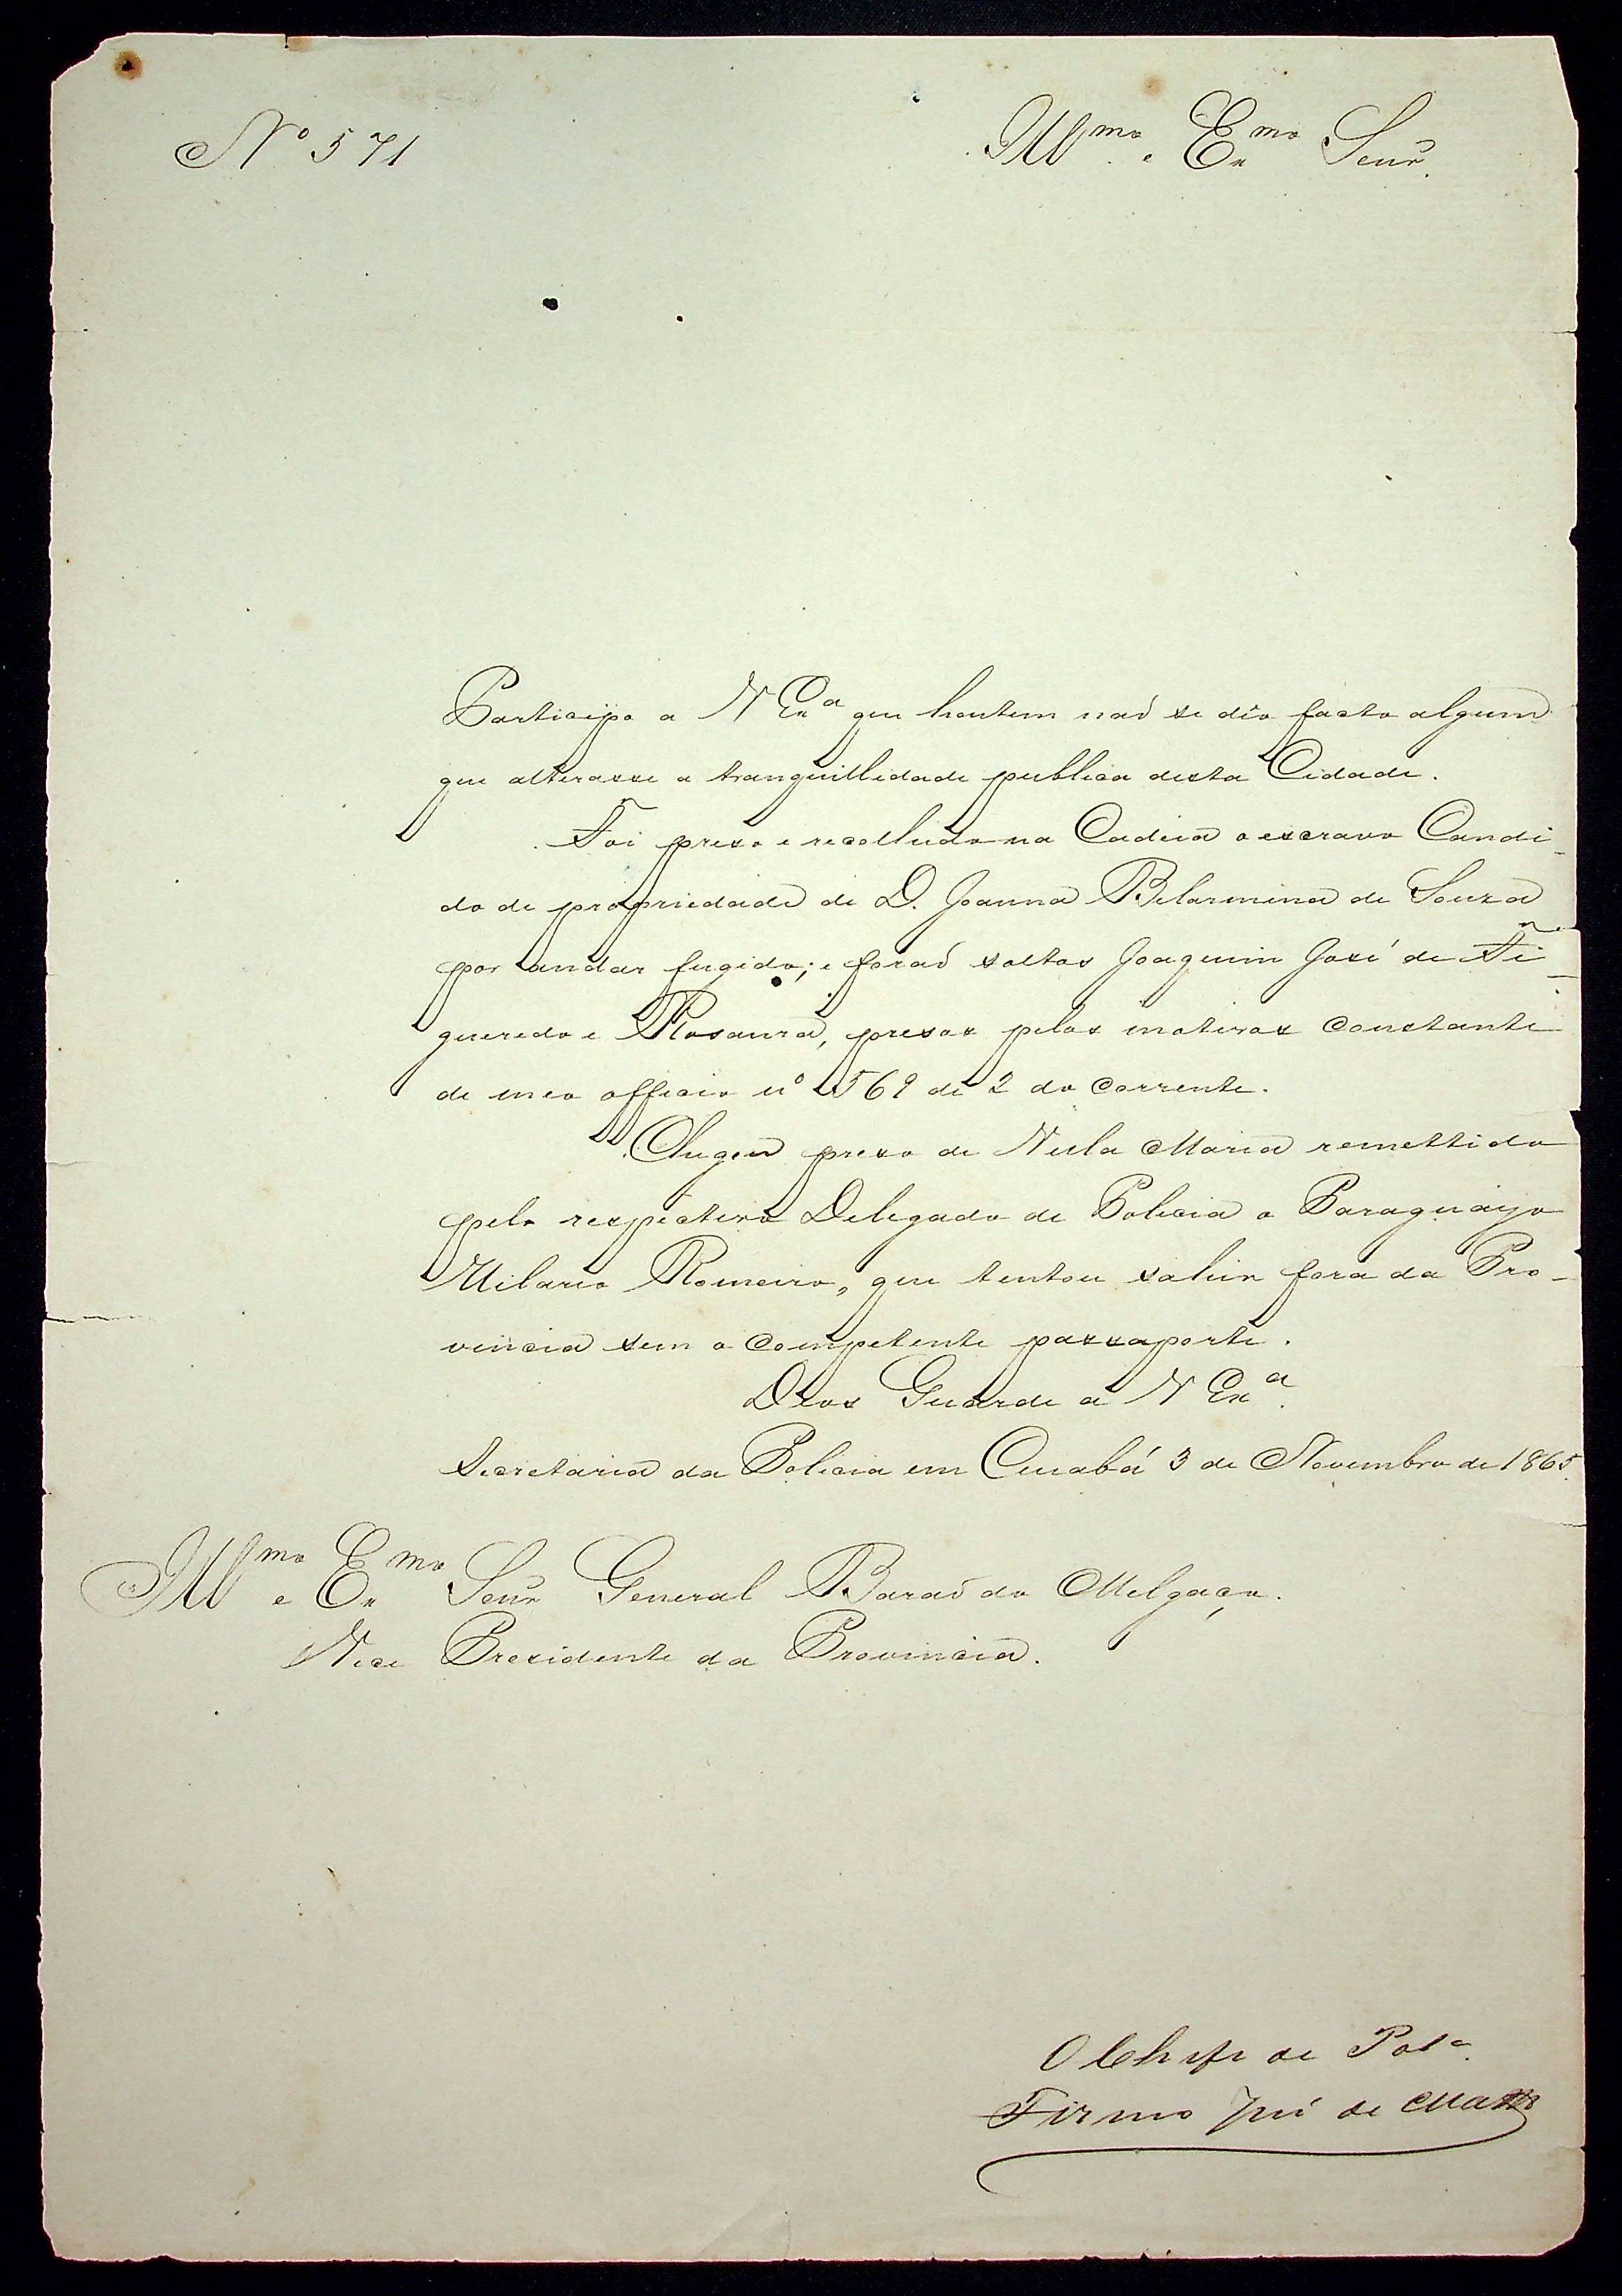 Nº 571
Illmo e Exmo Senr.
Participo a V Exª que hontem naõ se dêo facto algum
que alterasse a tranquillidade publica desta Cidade.
Foi preso e recolhido na Cadeia o escravo Candi-
do de propriedade de D. Joanna Belarmina de Souza
por andar fugido; e foraõ soltos Joaquim José de Fi-
gueredo e Rosaura, presos pelos motivos constante
de meo officio nº 569 de 2 do corrente.
Chegou preso de Villa Maria remettido
pelo respectivo Delegado de Policia o Paraguayo
Hilario Romeiro, que tentou sahir fora da Pro-
vincia sem o competente passaporte.
Deos Guarde a V Exª.
Secretaria da Policia em Cuiabá 3 de Novembro de 1865.
Illmo e Exmo Senr General Baraõ do Melgaço.
Vice Presidente da Provincia.
O Chefe de Polª.
Firmo José de Mattos